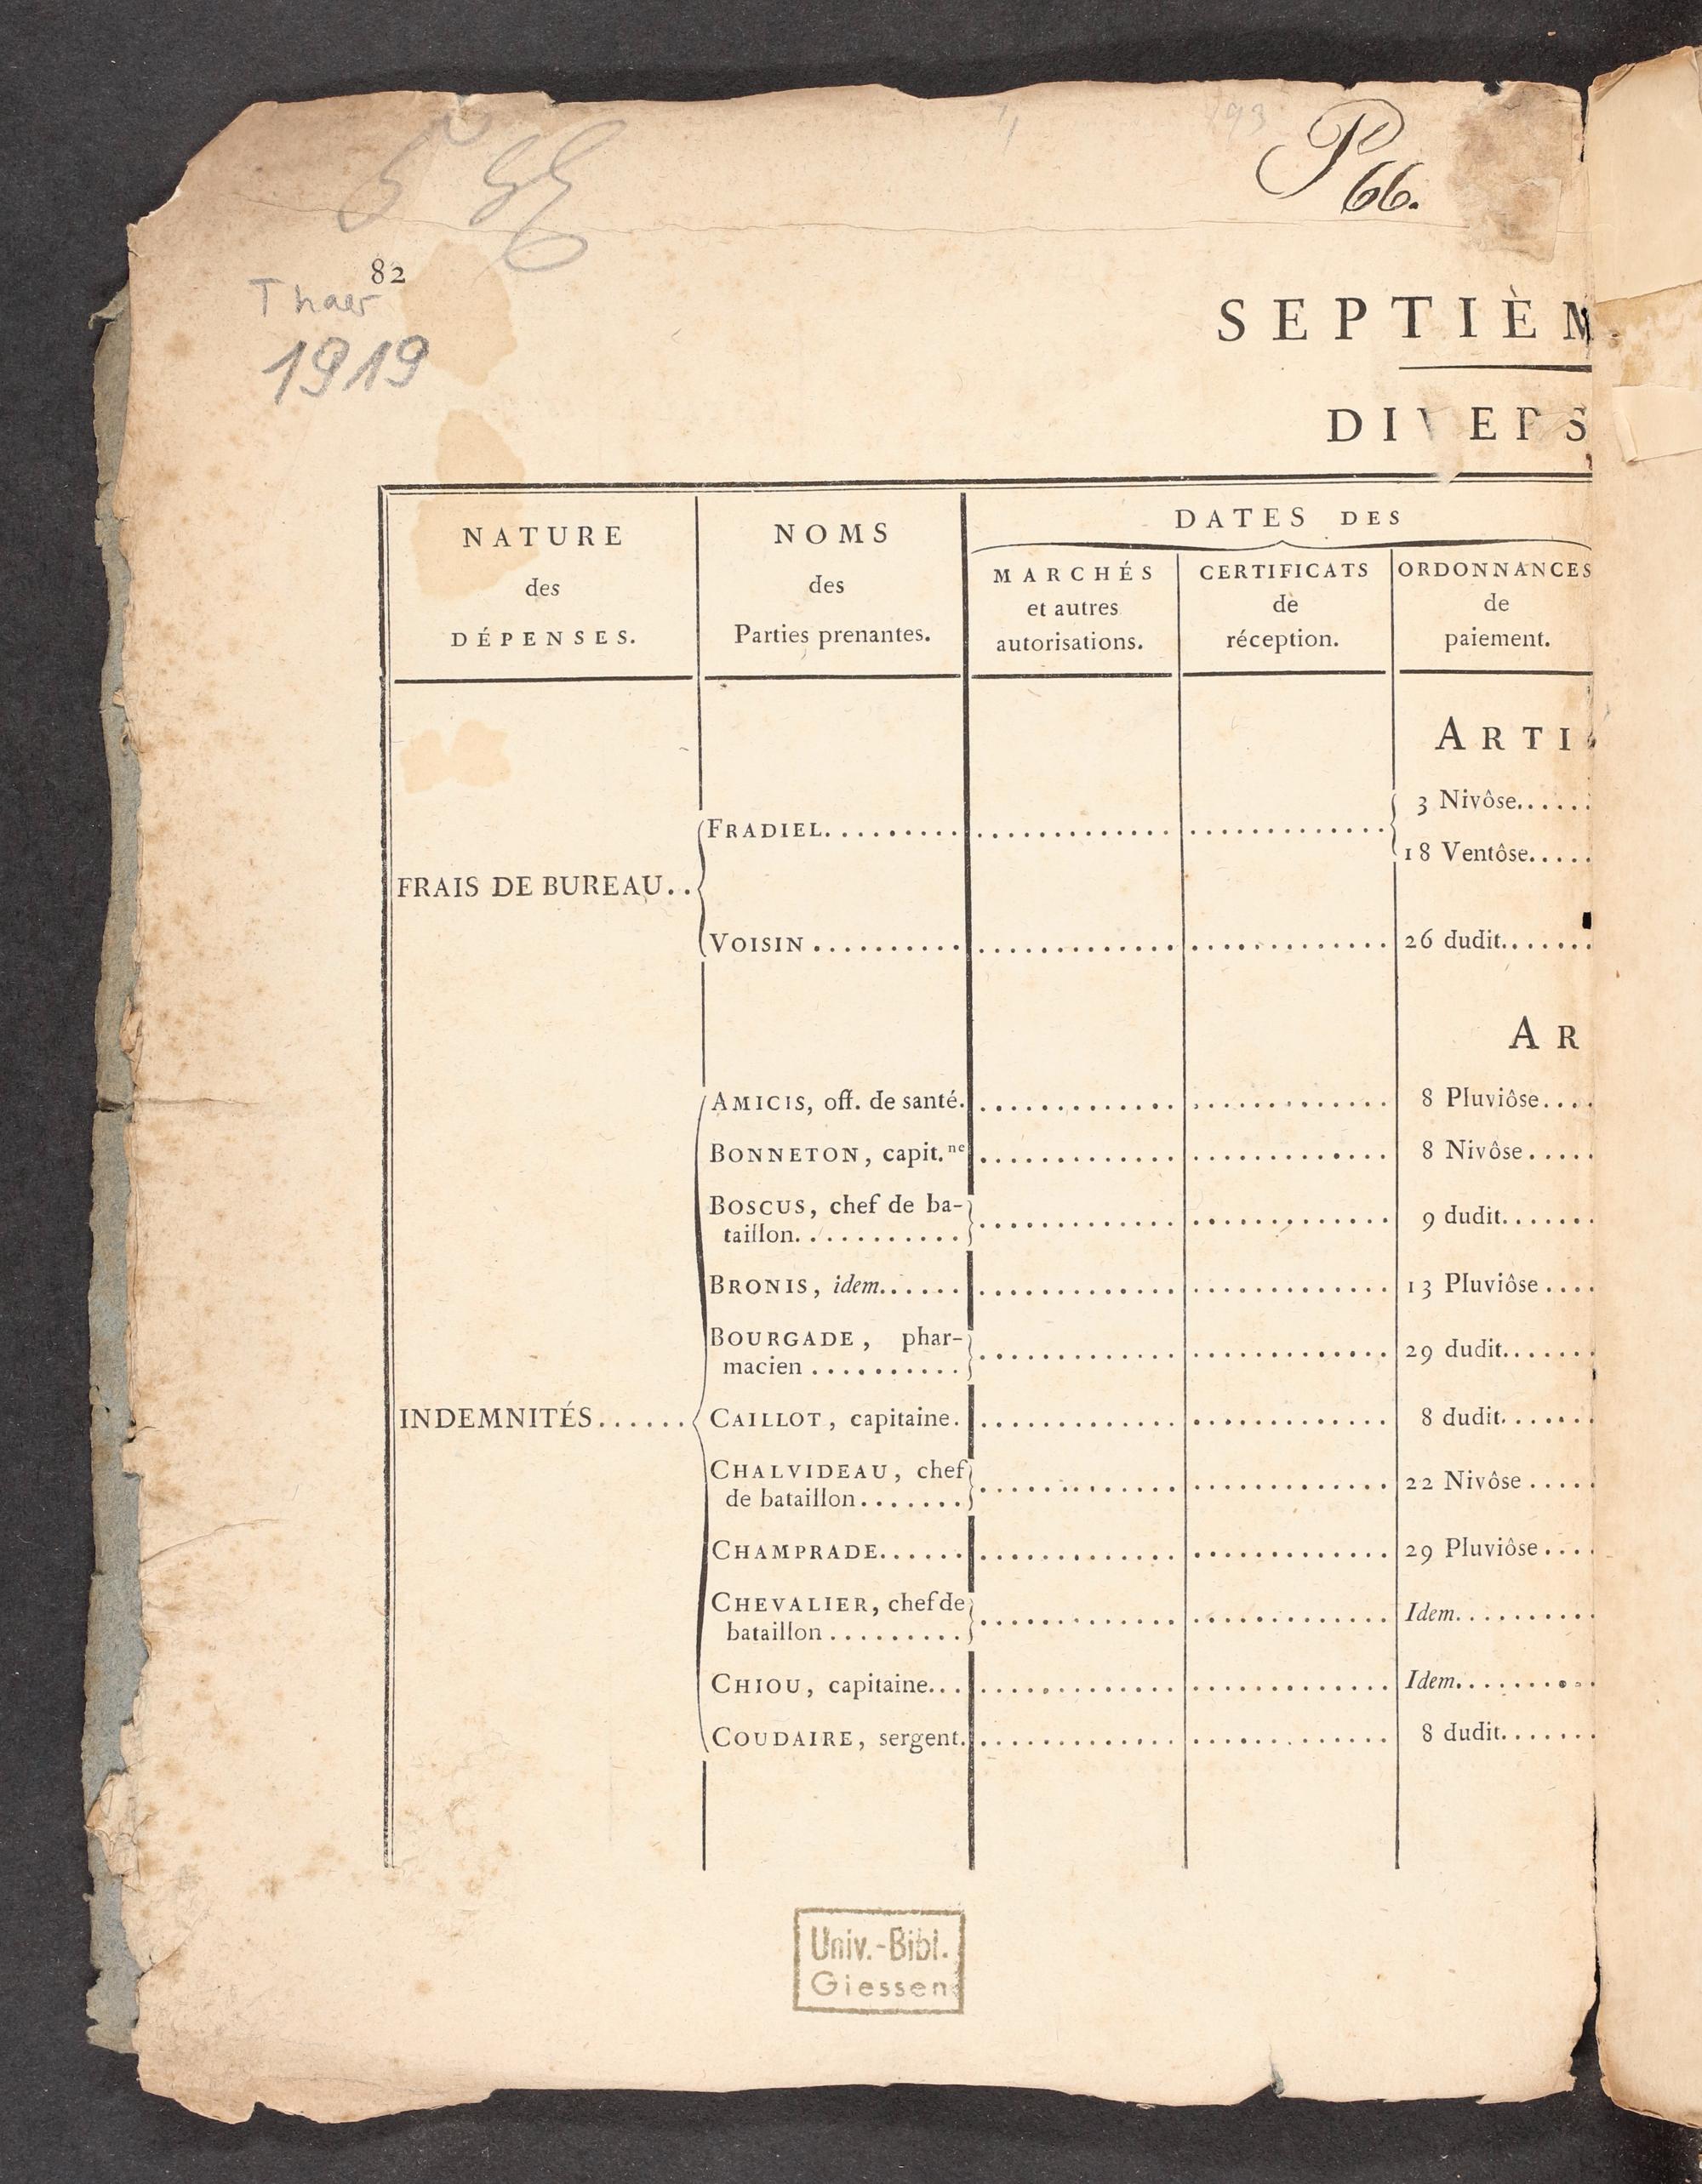 P
66.
82
Thaer
1919
SEPTIÈM
DIVERS
NATURE
des
DÉPENSES.
NOMS
des
Parties prenantes.
DATES DES
MARCHÉS
et autres
autorisations.
CERTIFICATS
de
réception.
ORDONNANCES
de
paiement.
ARTI
FRAIS DE BUREAU..
FRADIEL..........
3 Nivôse......
18 Ventôse.....
VOISIN..........
26 dudit.......
AR
INDEMNITÉS......
AMICIS, off. de santé.
8 Pluviôse....
BONNETON, capit.ne
8 Nivôse.....
BOSCUS, chef de ba-
taillon...........
9 dudit.......
BRONIS, idem......
13 Pluviôse....
BOURGADE, phar-
macien..........
29 dudit.......
CAILLOT, capitaine.
8 dudit.......
CHALVIDEAU, chef
de bataillon.......
22 Nivôse.....
CHAMPRADE......
29 Pluviôse....
CHEVALIER, chef de
bataillon.........
Idem..........
CHIOU, capitaine...
Idem..........
COUDAIRE, sergent.
8 dudit.......
Univ.-Bibl.
Giessen